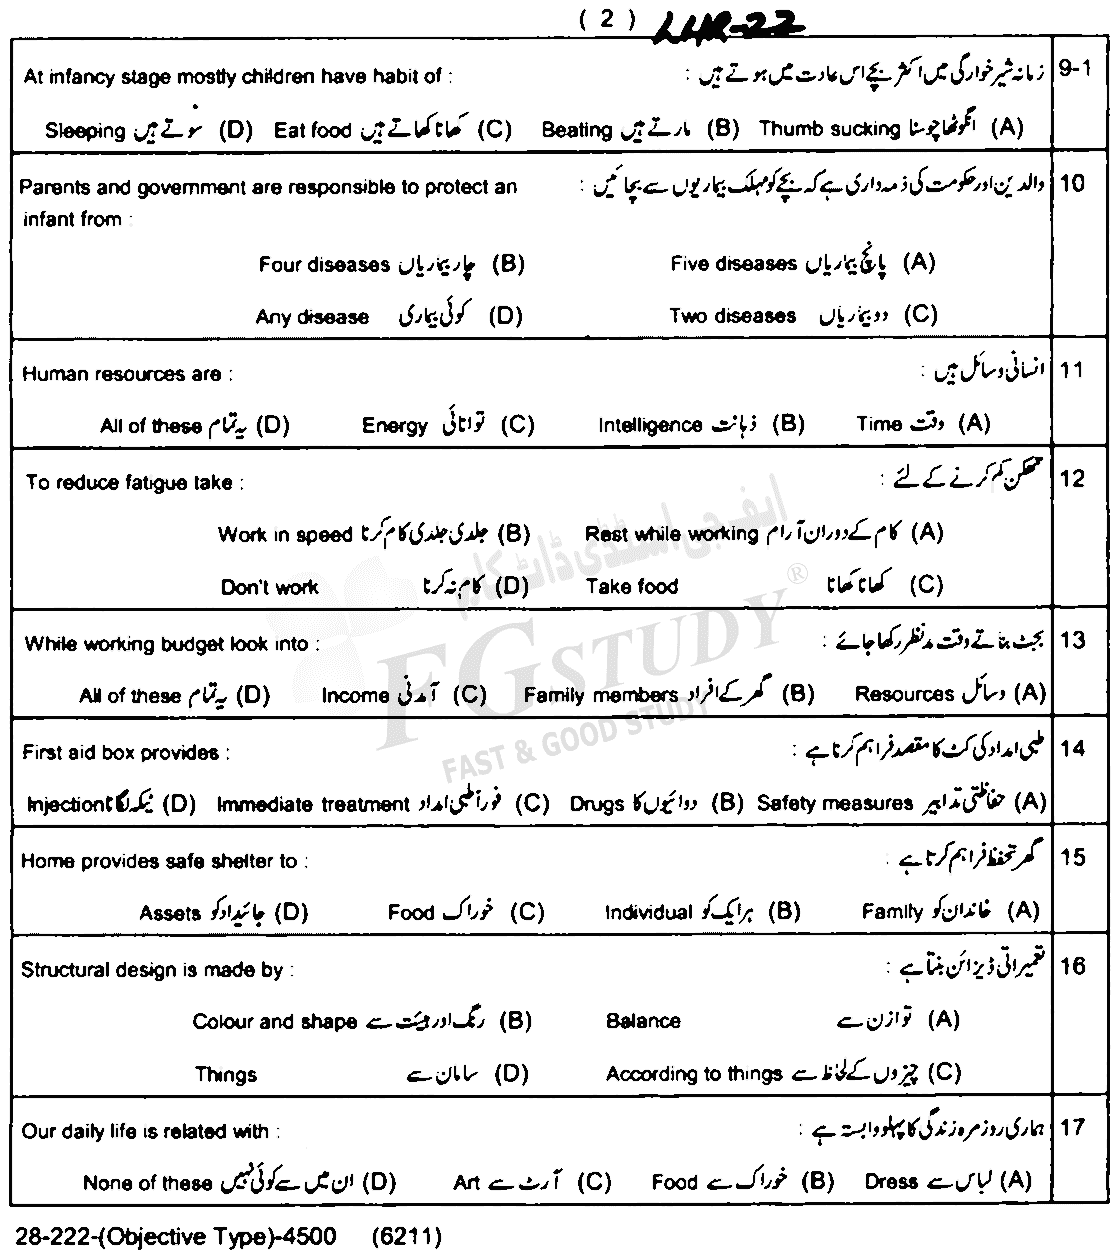 ( 2 ) LHR-22
At infancy stage mostly children have habit of : زمانہ شیر خوارگی میں اکثر بچے اس عادت میں ہوتے ہیں : 9-1
Sleeping سوتے ہیں (D) Eat food کھانا کھاتے ہیں (C) Beating مارتے ہیں (B) Thumb sucking انگوٹھا چوسنا (A)
Parents and government are responsible to protect an والدین اور حکومت کی ذمہ داری ہے کہ بچے کو مہلک بیماریوں سے بچائیں : 10
infant from :
Four diseases چار بیماریاں (B) Five diseases پانچ بیماریاں (A)
Any disease کوئی بیماری (D) Two diseases دو بیماریاں (C)
Human resources are : انسانی وسائل ہیں : 11
All of these یہ تمام (D) Energy توانائی (C) Intelligence ذہانت (B) Time وقت (A)
To reduce fatigue take : تھکن کم کرنے کے لئے : 12
Work in speed جلدی جلدی کام کرنا (B) Rest while working کام کے دوران آرام (A)
Don't work کام نہ کرنا (D) Take food کھانا کھانا (C)
While working budget look into : بجٹ بناتے وقت مدنظر رکھا جائے : 13
All of these یہ تمام (D) Income آمدنی (C) Family members گھر کے افراد (B) Resources وسائل (A)
First aid box provides : طبی امداد کی کٹ کا مقصد فراہم کرنا ہے : 14
Injection ٹیکہ لگانا (D) Immediate treatment فوراً طبی امداد (C) Drugs دوائیوں کا (B) Safety measures حفاظتی تدابیر (A)
Home provides safe shelter to : گھر تحفظ فراہم کرتا ہے : 15
Assets جائیداد کو (D) Food خوراک (C) Individual ہر ایک کو (B) Family خاندان کو (A)
Structural design is made by : تعمیراتی ڈیزائن بنتا ہے : 16
Colour and shape رنگ اور ہیئت سے (B) Balance توازن سے (A)
Things سامان سے (D) According to things چیزوں کے لحاظ سے (C)
Our daily life is related with : ہماری روزمرہ زندگی کا پہلو وابستہ ہے : 17
None of these ان میں سے کوئی نہیں (D) Art آرٹ سے (C) Food خوراک سے (B) Dress لباس سے (A)
28-222-(Objective Type)-4500 (6211)
ایف جی اسٹڈی ڈاٹ کام
FG STUDY ®
FAST & GOOD STUDY